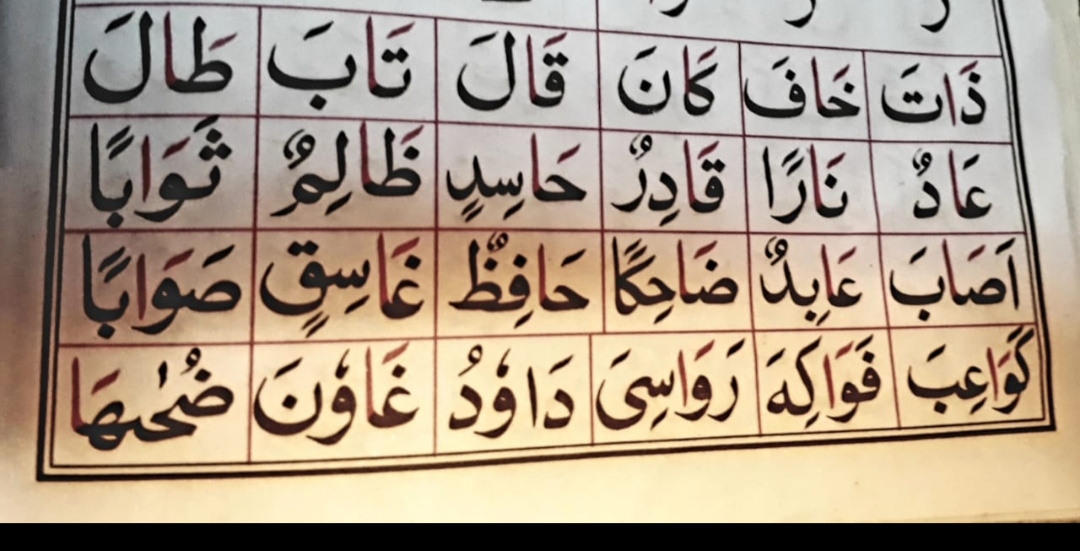 ذَاتَ خَافَ كَانَ قَالَ تَابَ طَالَ
عَادٌ نَارًا قَادِرٌ حَاسِدٍ ظَالِمٌ ثَوَابًا
اَصَابَ عَابِدٌ ضَاحِكًا حَافِظٌ غَاسِقٍ صَوَابًا
كَوَاعِبَ فَوَاكِهَ رَوَاسِيَ دَاوٗدُ غَاوٗنَ ضُحٰىهَا